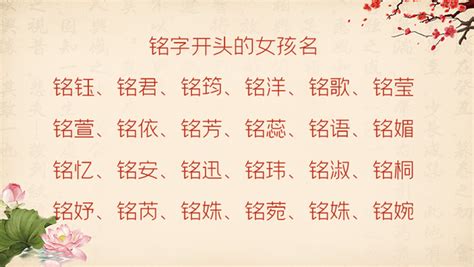 铭字开头的女孩名
铭钰、铭君、铭筠、铭洋、铭歌、铭莹
铭萱、铭依、铭芳、铭蕊、铭语、铭媚
铭忆、铭安、铭迅、铭玮、铭淑、铭桐
铭妤、铭芮、铭姝、铭菀、铭姝、铭婉